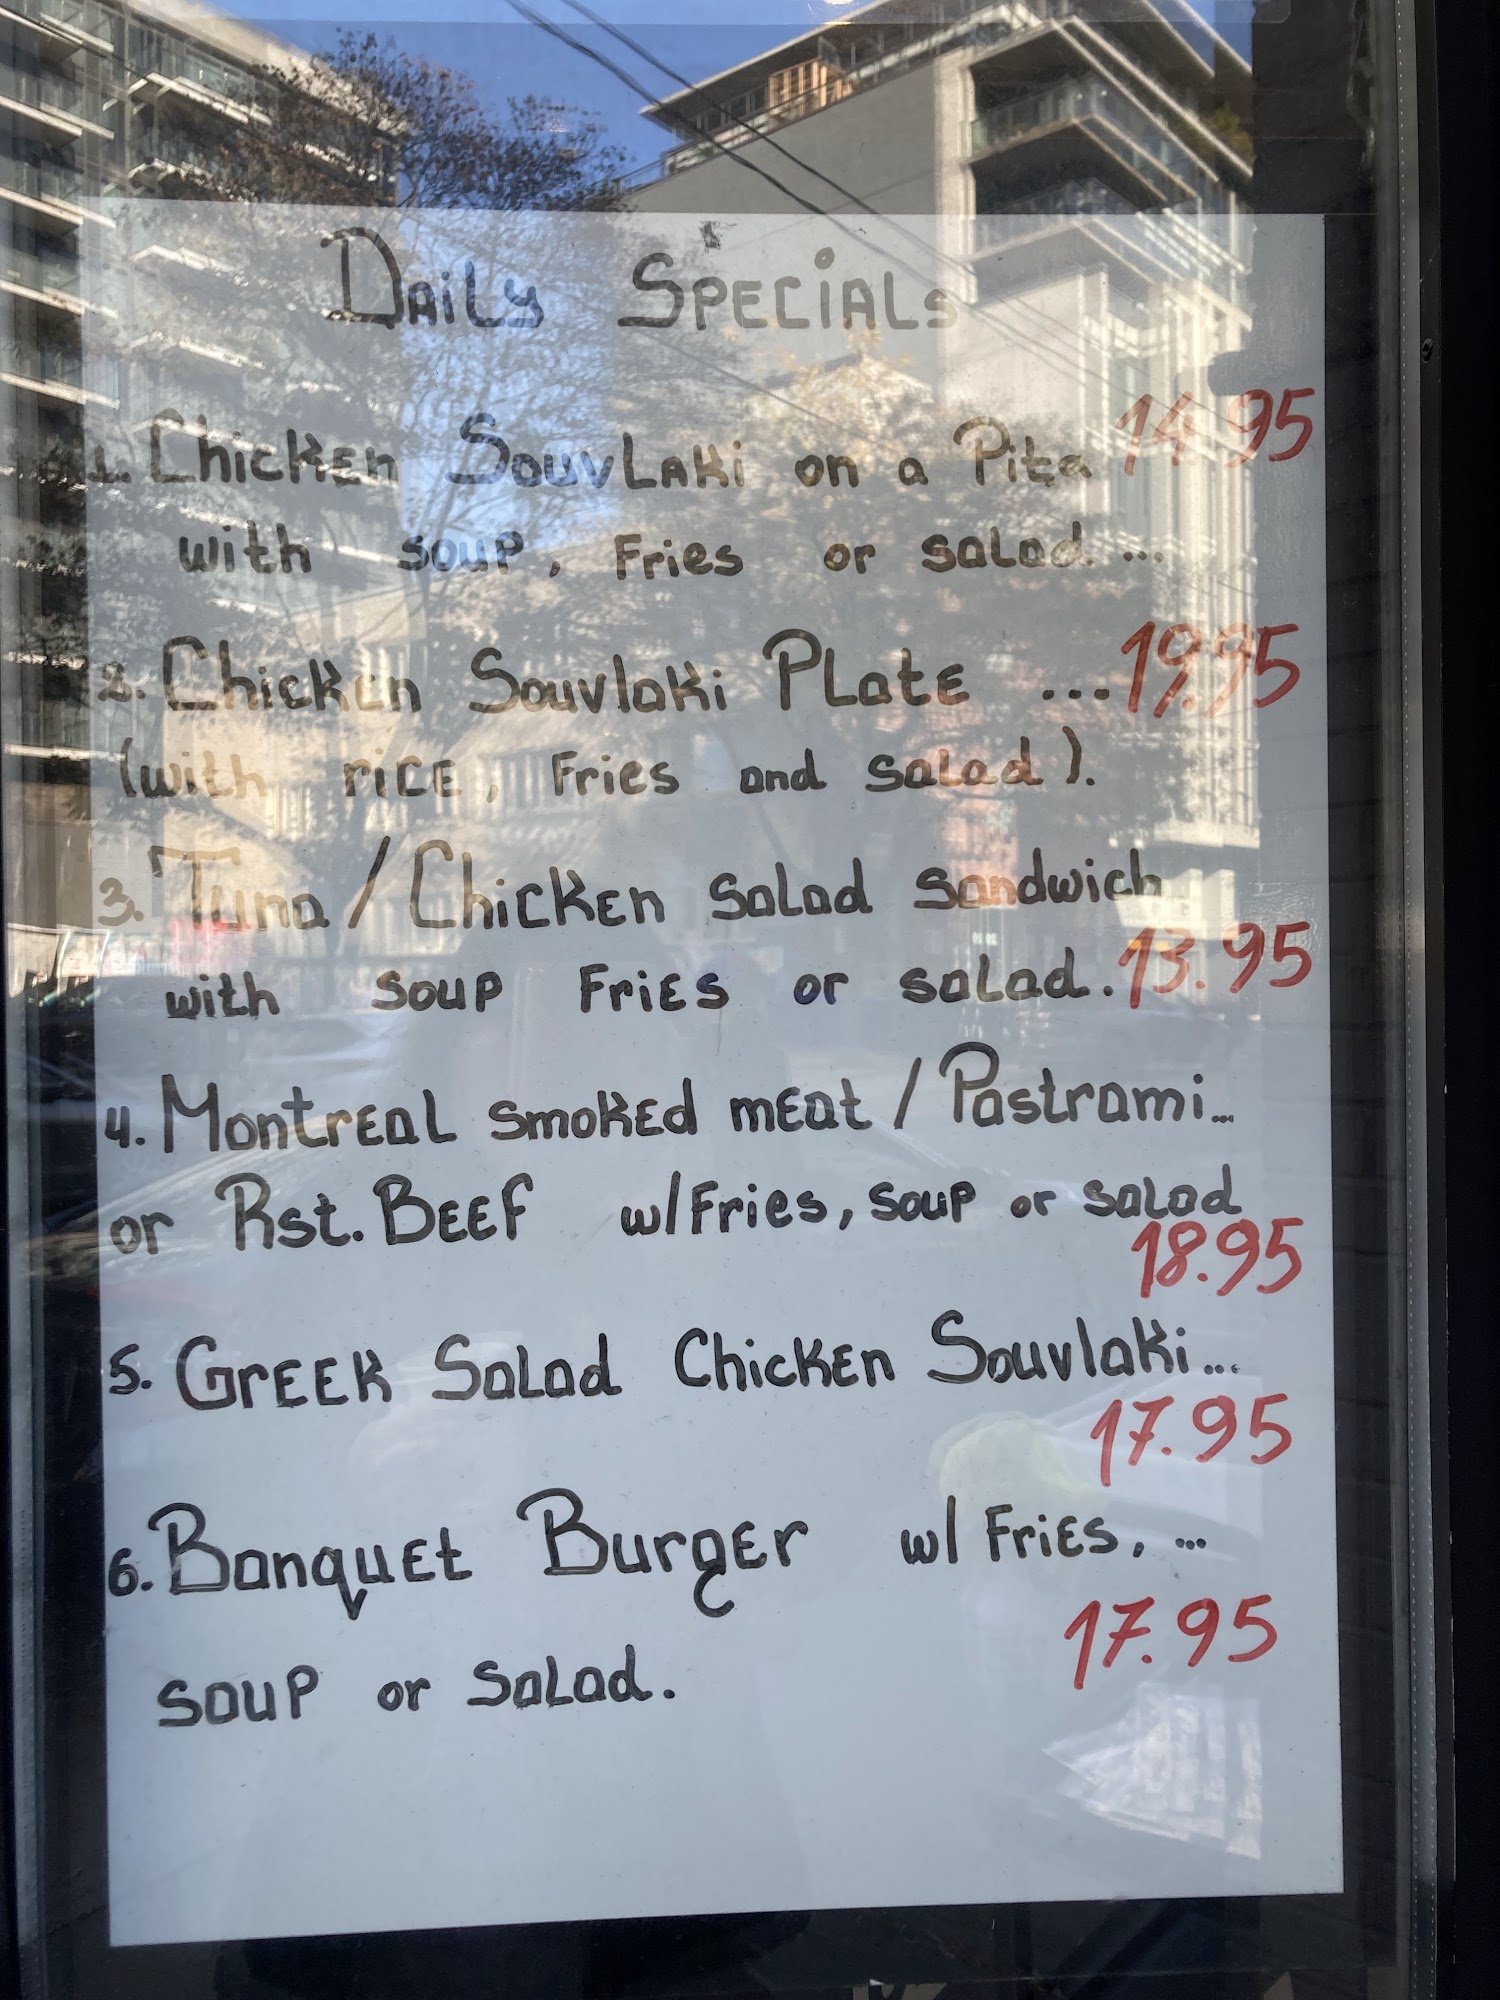 Daily Specials
1. Chicken Souvlaki on a Pita 14.95
with soup, Fries or salad. ...
2. Chicken Souvlaki Plate ... 19.95
(with rice, Fries and salad).
3. Tuna / Chicken salad sandwich
with soup Fries or salad. 13.95
4. Montreal smoked meat / Pastrami...
or Rst. Beef w/ Fries, soup or salad
18.95
5. Greek Salad Chicken Souvlaki...
17.95
6. Banquet Burger w/ Fries, ...
17.95
soup or salad.